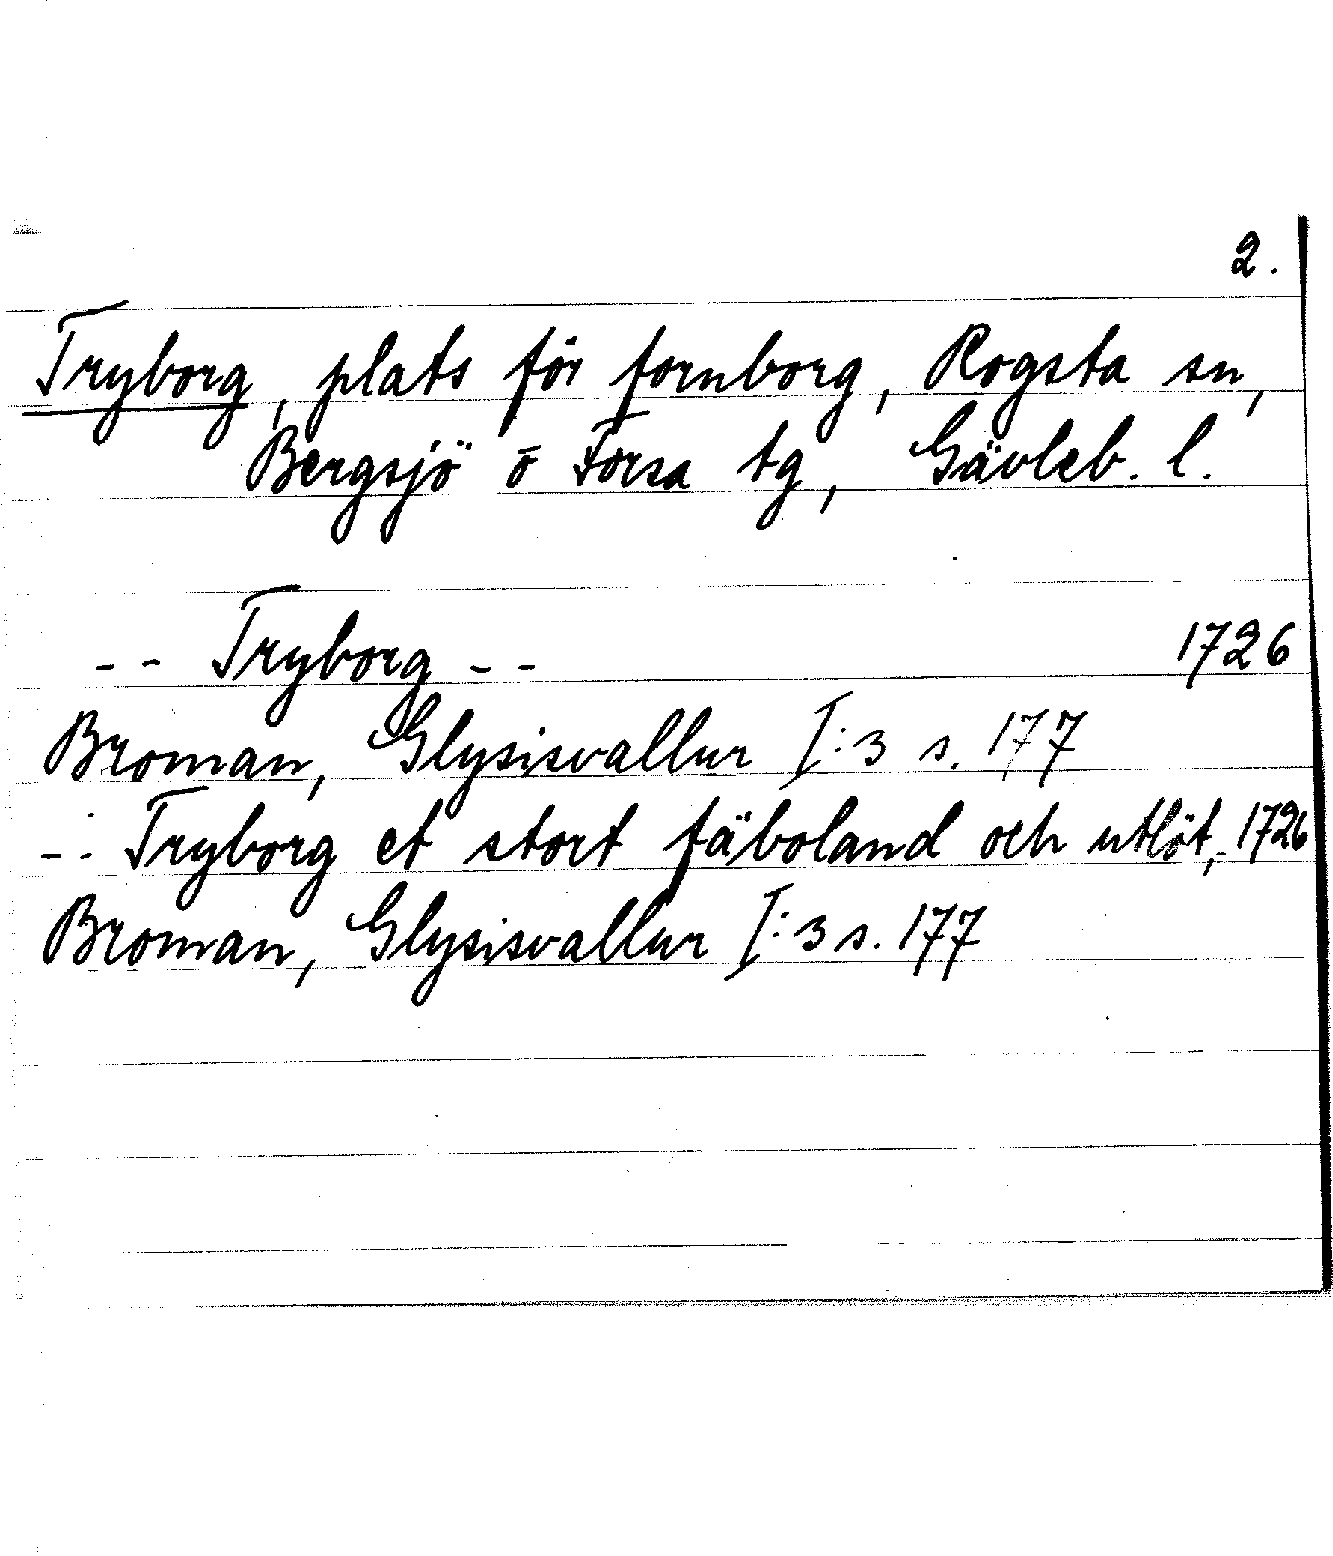 2.
Tryborg, plats för fornborg, Rogsta sn,
Bergsjö o Forsa tg, Gävleb. l.
-- Tryborg -- 1726
Broman, Glysisvallur I:3 s. 177
-- Tryborg et stort fäboland och utlöt, 1726
Broman, Glysisvallur I:3 s. 177